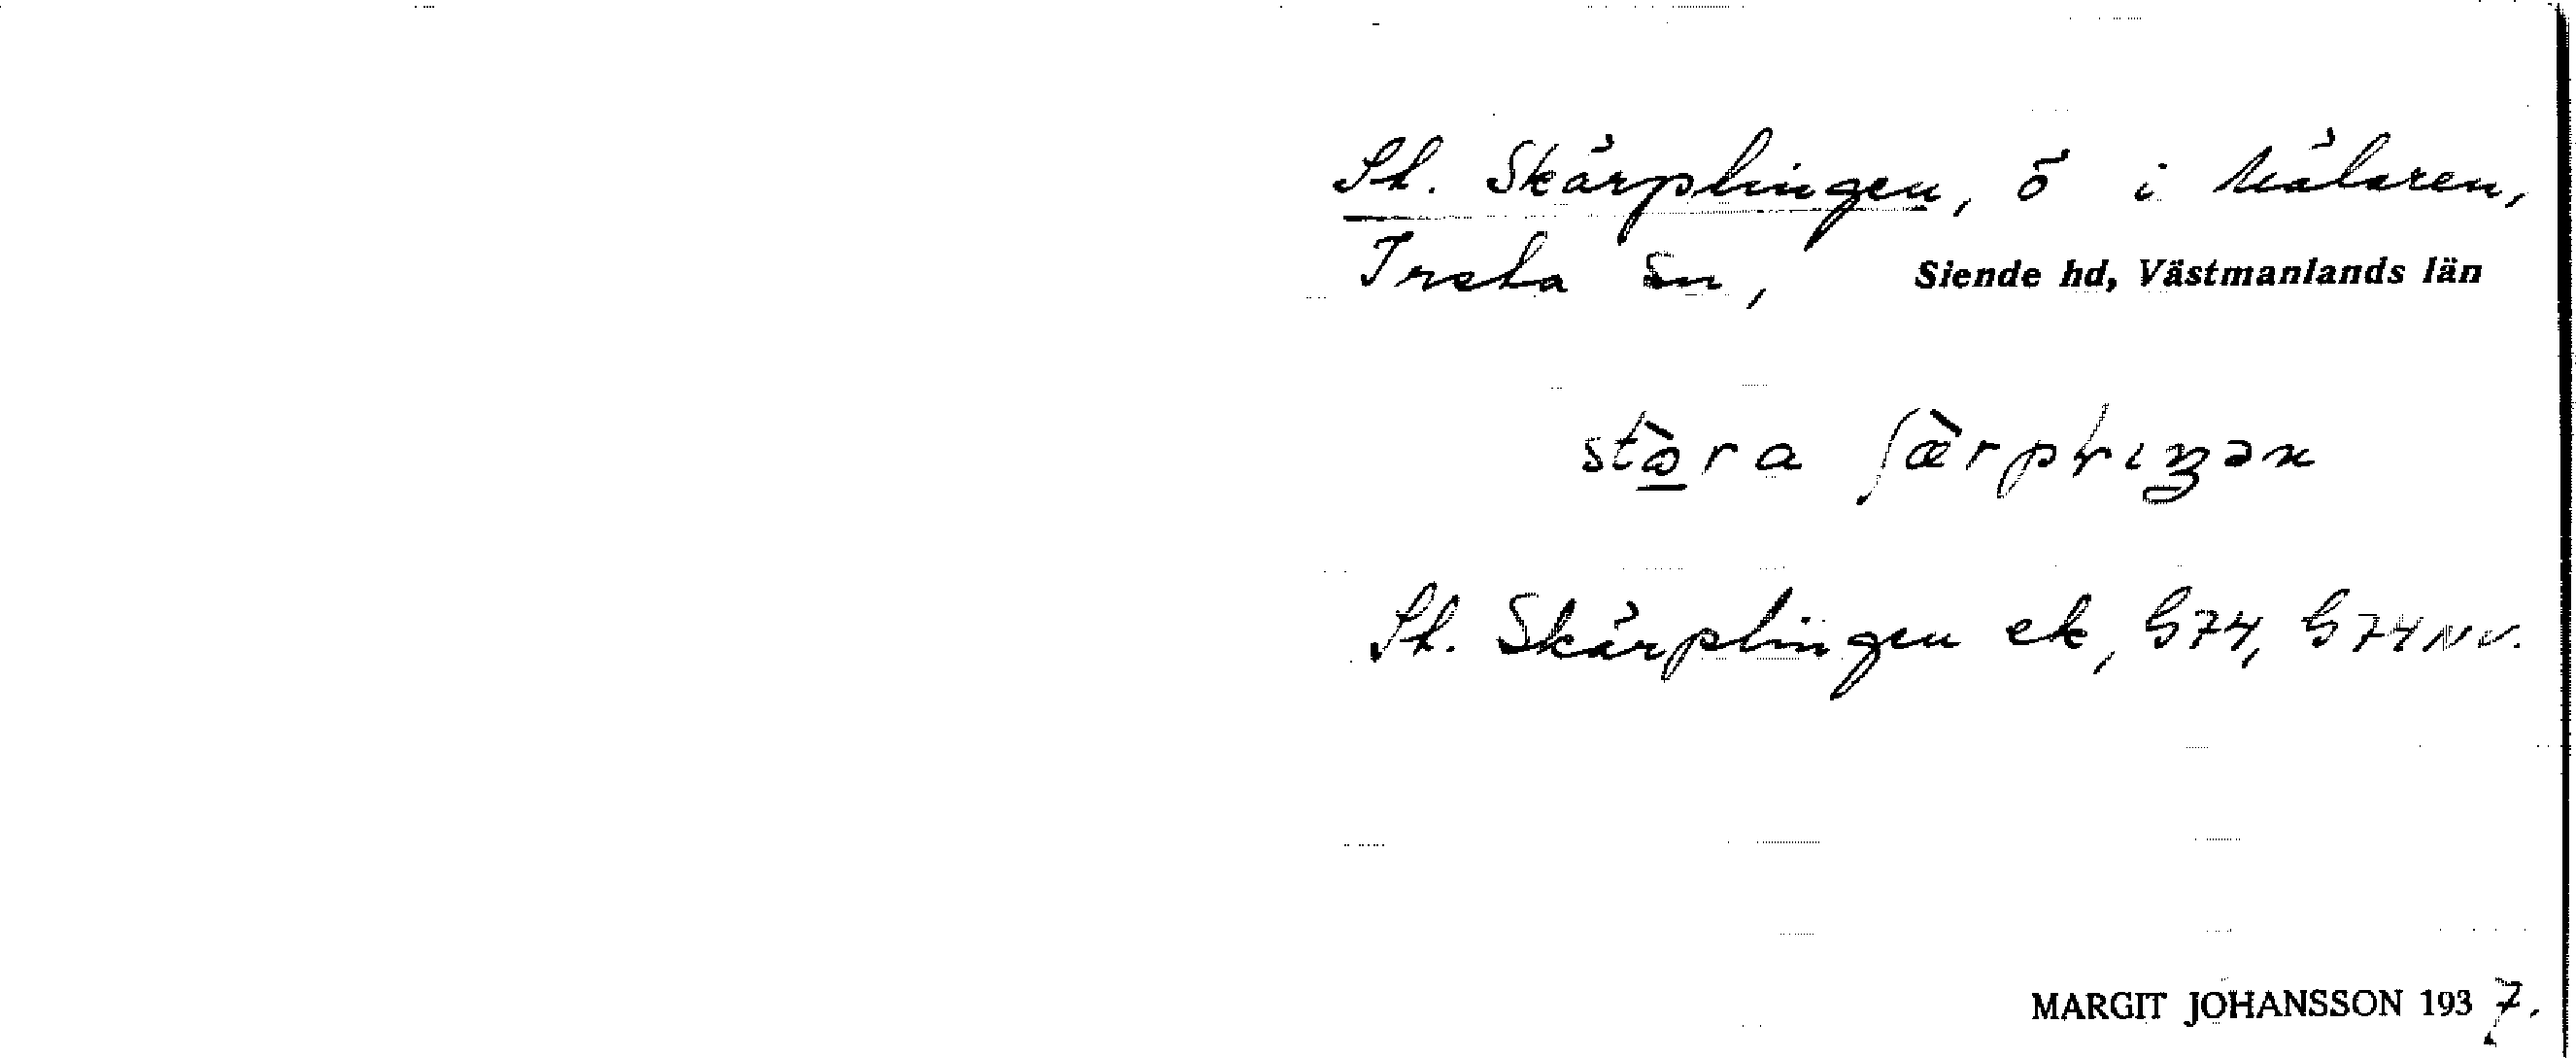 St. Skärplingen, ö i Mälaren,
Irsta sn, Siende hd, Västmanlands län
stò̱ra ʃæ̀rpɫɩŋən
St. Skärplingen ek, G74, G74NV.
MARGIT JOHANSSON 1937.